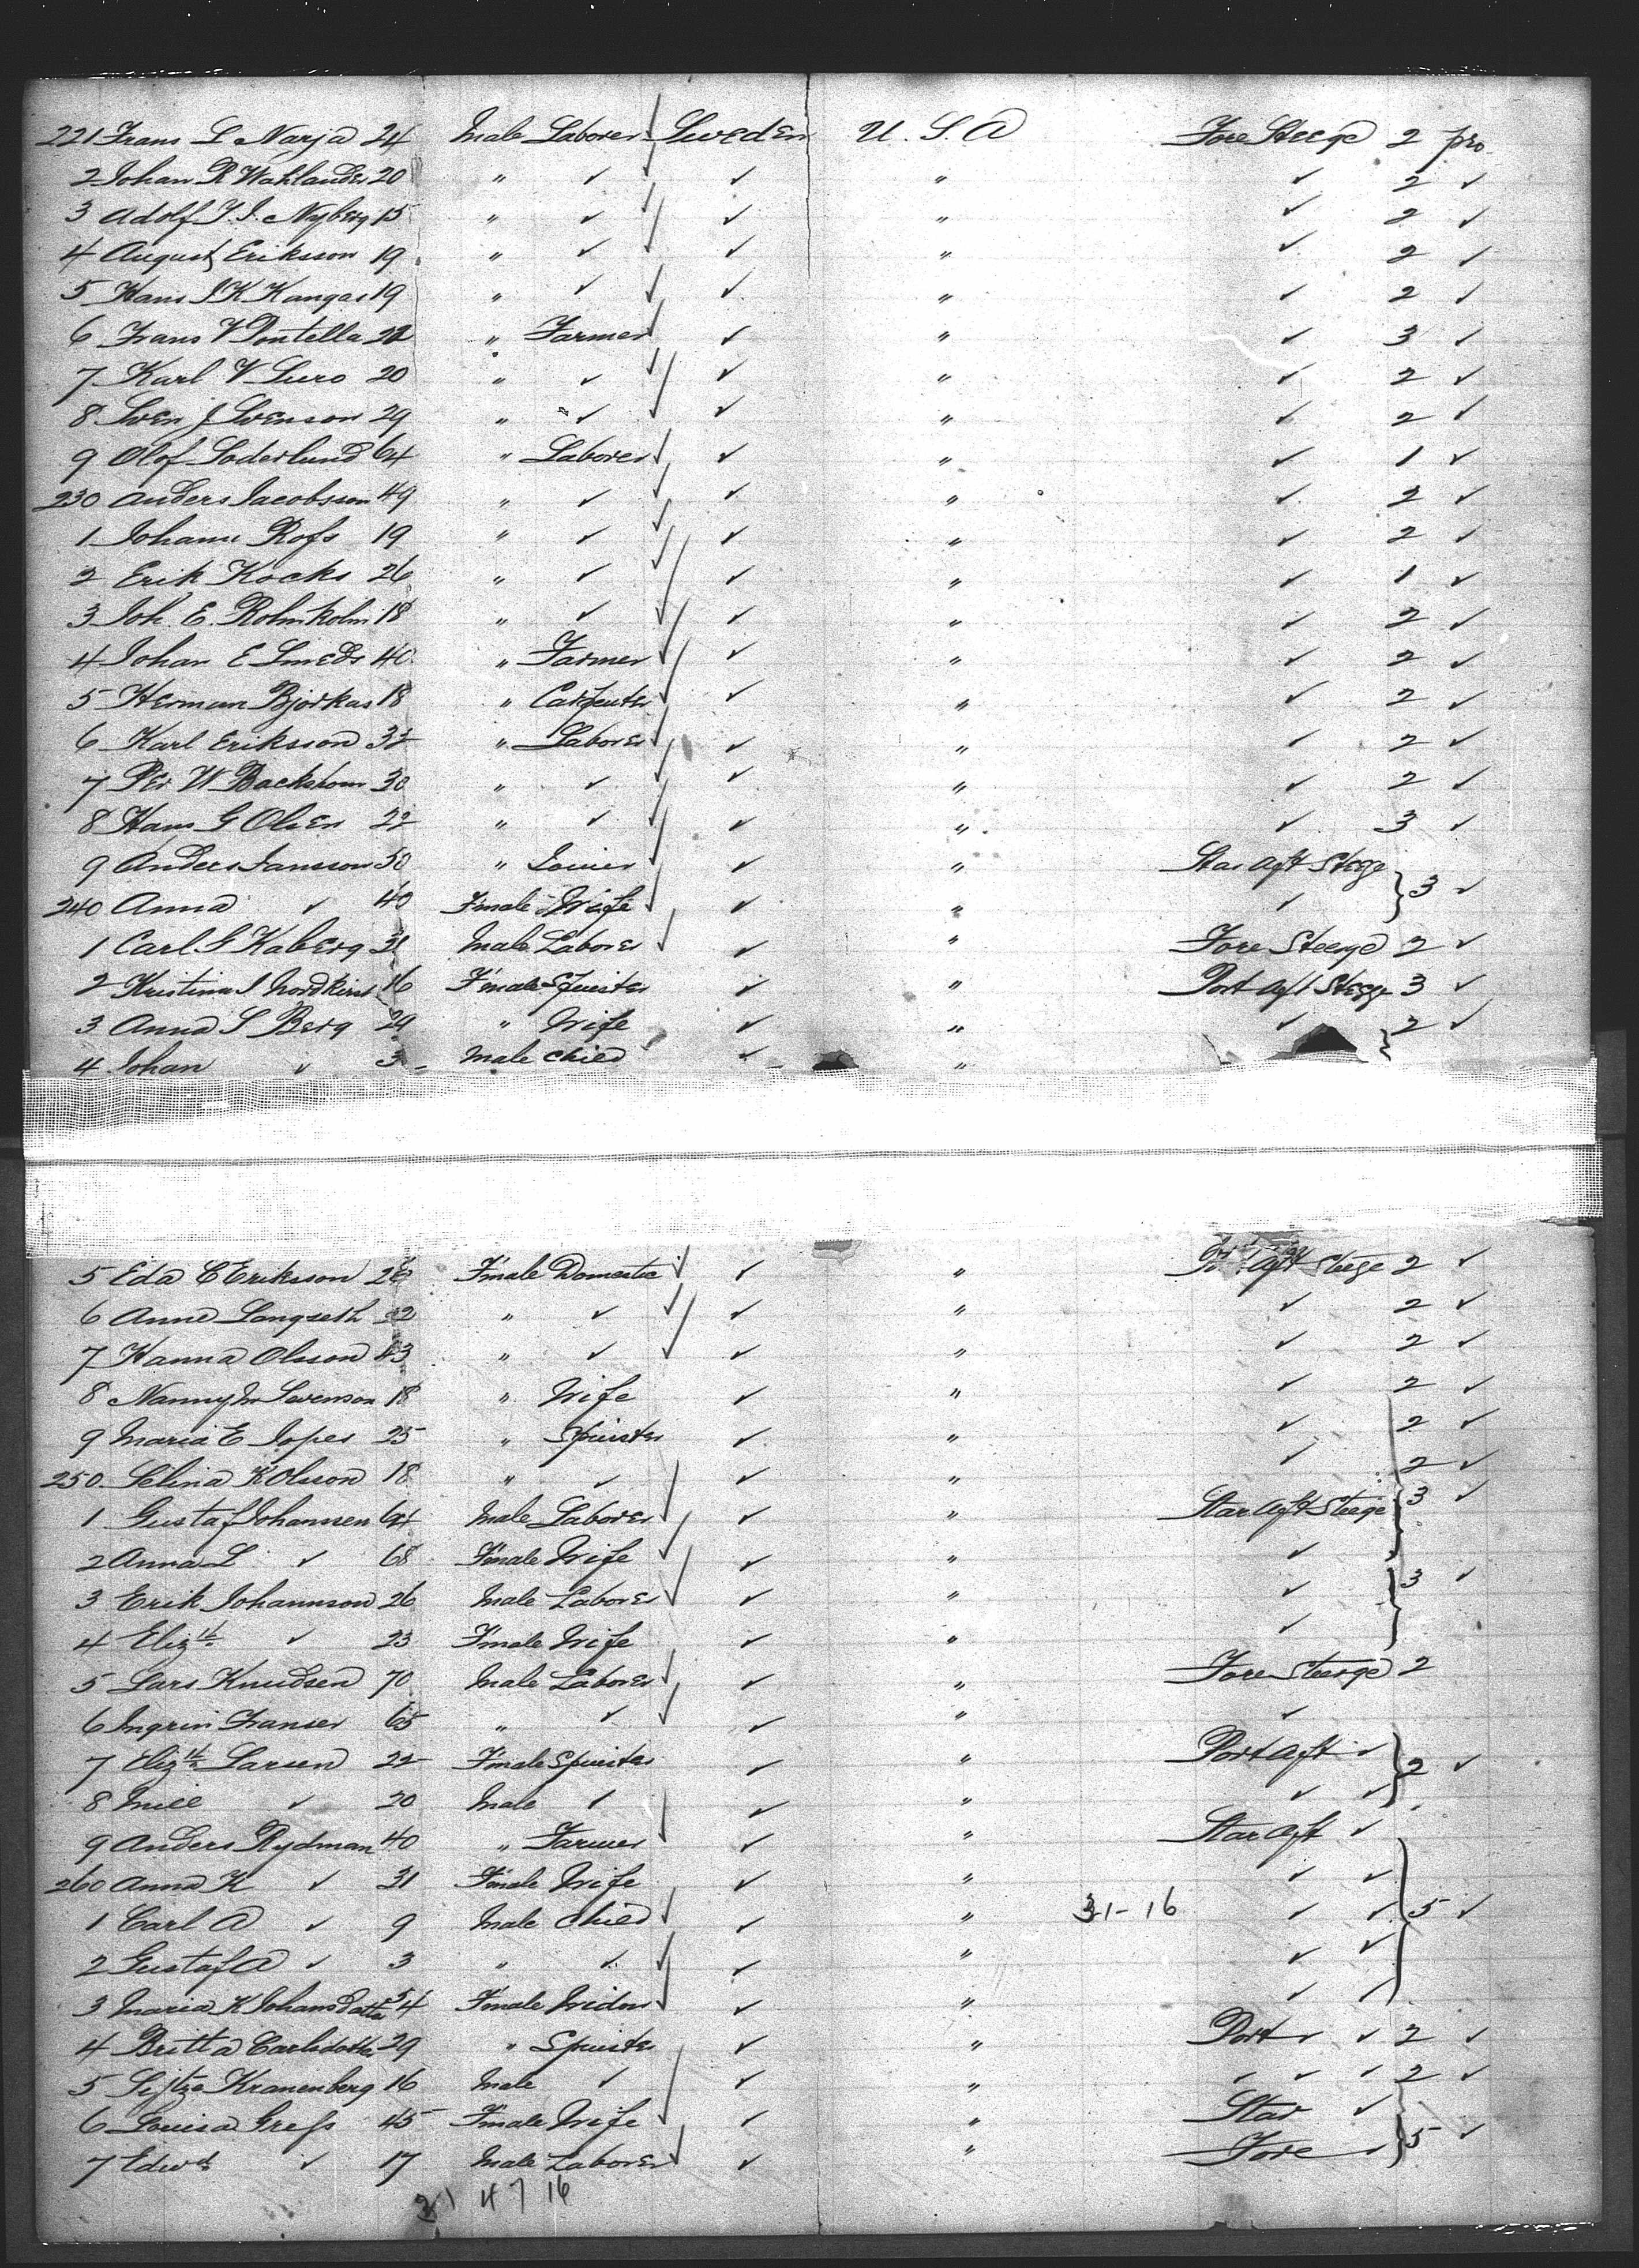 221 Frans L Narja 24 Male Laborer Sweden U. S. A Fore Steege 2 pro
2 Johan R Wahlander 20 " ✓ ✓ " ✓ 2 ✓
3 Adolf F. I. Nyberg 15 " ✓ ✓ " ✓ 2 ✓
4 August Eriksson 19 " ✓ ✓ " ✓ 2 ✓
5 Hans I K Kangas 19 " ✓ ✓ " ✓ 2 ✓
6 Frans V Pontella 22 " Farmer ✓ " ✓ 3 ✓
7 Karl V Luro 20 " ✓ ✓ " ✓ 2 ✓
8 Sven J Svenson 29 " ✓ ✓ " ✓ 2 ✓
9 Olof Soderlund 64 " Laborer ✓ " ✓ 1 ✓
230 Anders Jacobsson 49 " ✓ ✓ " ✓ 2 ✓
1 Johann Rofs 19 " ✓ ✓ " ✓ 2 ✓
2 Erik Kocks 26 " ✓ ✓ " ✓ 1 ✓
3 Joh. E. Rohnkolm 18 " ✓ ✓ " ✓ 2 ✓
4 Johan E Smeds 40 " Farmer ✓ " ✓ 2 ✓
5 Herman Bjorkas 18 " Carpenter ✓ " ✓ 2 ✓
6 Karl Eriksson 32 " Laborer ✓ " ✓ 2 ✓
7 Per W Backstrom 30 " ✓ ✓ " ✓ 2 ✓
8 Hans G Olsen 22 " ✓ ✓ " ✓ 3 ✓
9 Anders Jansson 50 " Joiner ✓ " Star Aft Steege
240 Anna ✓ 40 Female Wife ✓ " ✓ 3 ✓
1 Carl F Kaberg 31 Male Laborer ✓ " Fore Steege 2 ✓
2 Kristina S Nordkirst 16 Female Spinster ✓ " Port Aft Steege 3 ✓
3 Anna S Berg 29 " Wife ✓ " ✓ 2 ✓
4 Johan ✓ 3 Male Child ✓ "
5 Eda C Eriksson 26 Female Domestic ✓ " Aft Steege 2 ✓
6 Anne Langseth 22 " ✓ ✓ " ✓ 2 ✓
7 Hanna Olsson 43 " ✓ ✓ " ✓ 2 ✓
8 Nanny M Swenson 18 " Wife ✓ " ✓ 2 ✓
9 Maria E Jopes 25 " Spinster ✓ " ✓ 2 ✓
250 Selina K Olsson 18 " ✓ ✓ " ✓ 2 ✓
1 Gustaf Johannsen 64 Male Laborer ✓ " Star Aft Steege 3 ✓
2 Anna L ✓ 68 Female Wife ✓ " ✓
3 Erik Johannson 26 Male Laborer ✓ " ✓ 3 ✓
4 Elizth ✓ 23 Female Wife ✓ " ✓
5 Lars Knudsen 70 Male Laborer ✓ " Fore Steege 2
6 Ingrin Franser 65 " ✓ ✓ " ✓
7 Elizth Larsen 22 Female Spinster ✓ " Port Aft ✓ 2 ✓
8 Miee ✓ 20 Male ✓ ✓ " ✓ ✓
9 Anders Rydman 40 " Farmer ✓ " Star Aft ✓
260 Anna K ✓ 31 Female Wife ✓ " ✓ ✓
1 Carl A ✓ 9 Male Child ✓ " 31-16 ✓ ✓ 5 ✓
2 Gustaf A ✓ 3 " ✓ ✓ " ✓ ✓
3 Maria K Johansdatter 54 Female Widow ✓ " ✓ ✓
4 Britta Carlsdotter 29 " Spinster ✓ " Port ✓ ✓ 2 ✓
5 Sijtze Kranenberg 16 Male ✓ ✓ " ✓ ✓ ✓ 2 ✓
6 Louisa Grefs 45 Female Wife ✓ " Star ✓
7 Edwd ✓ 17 Male Laborer ✓ " Fore ✓ 5 ✓
21 4 7 16